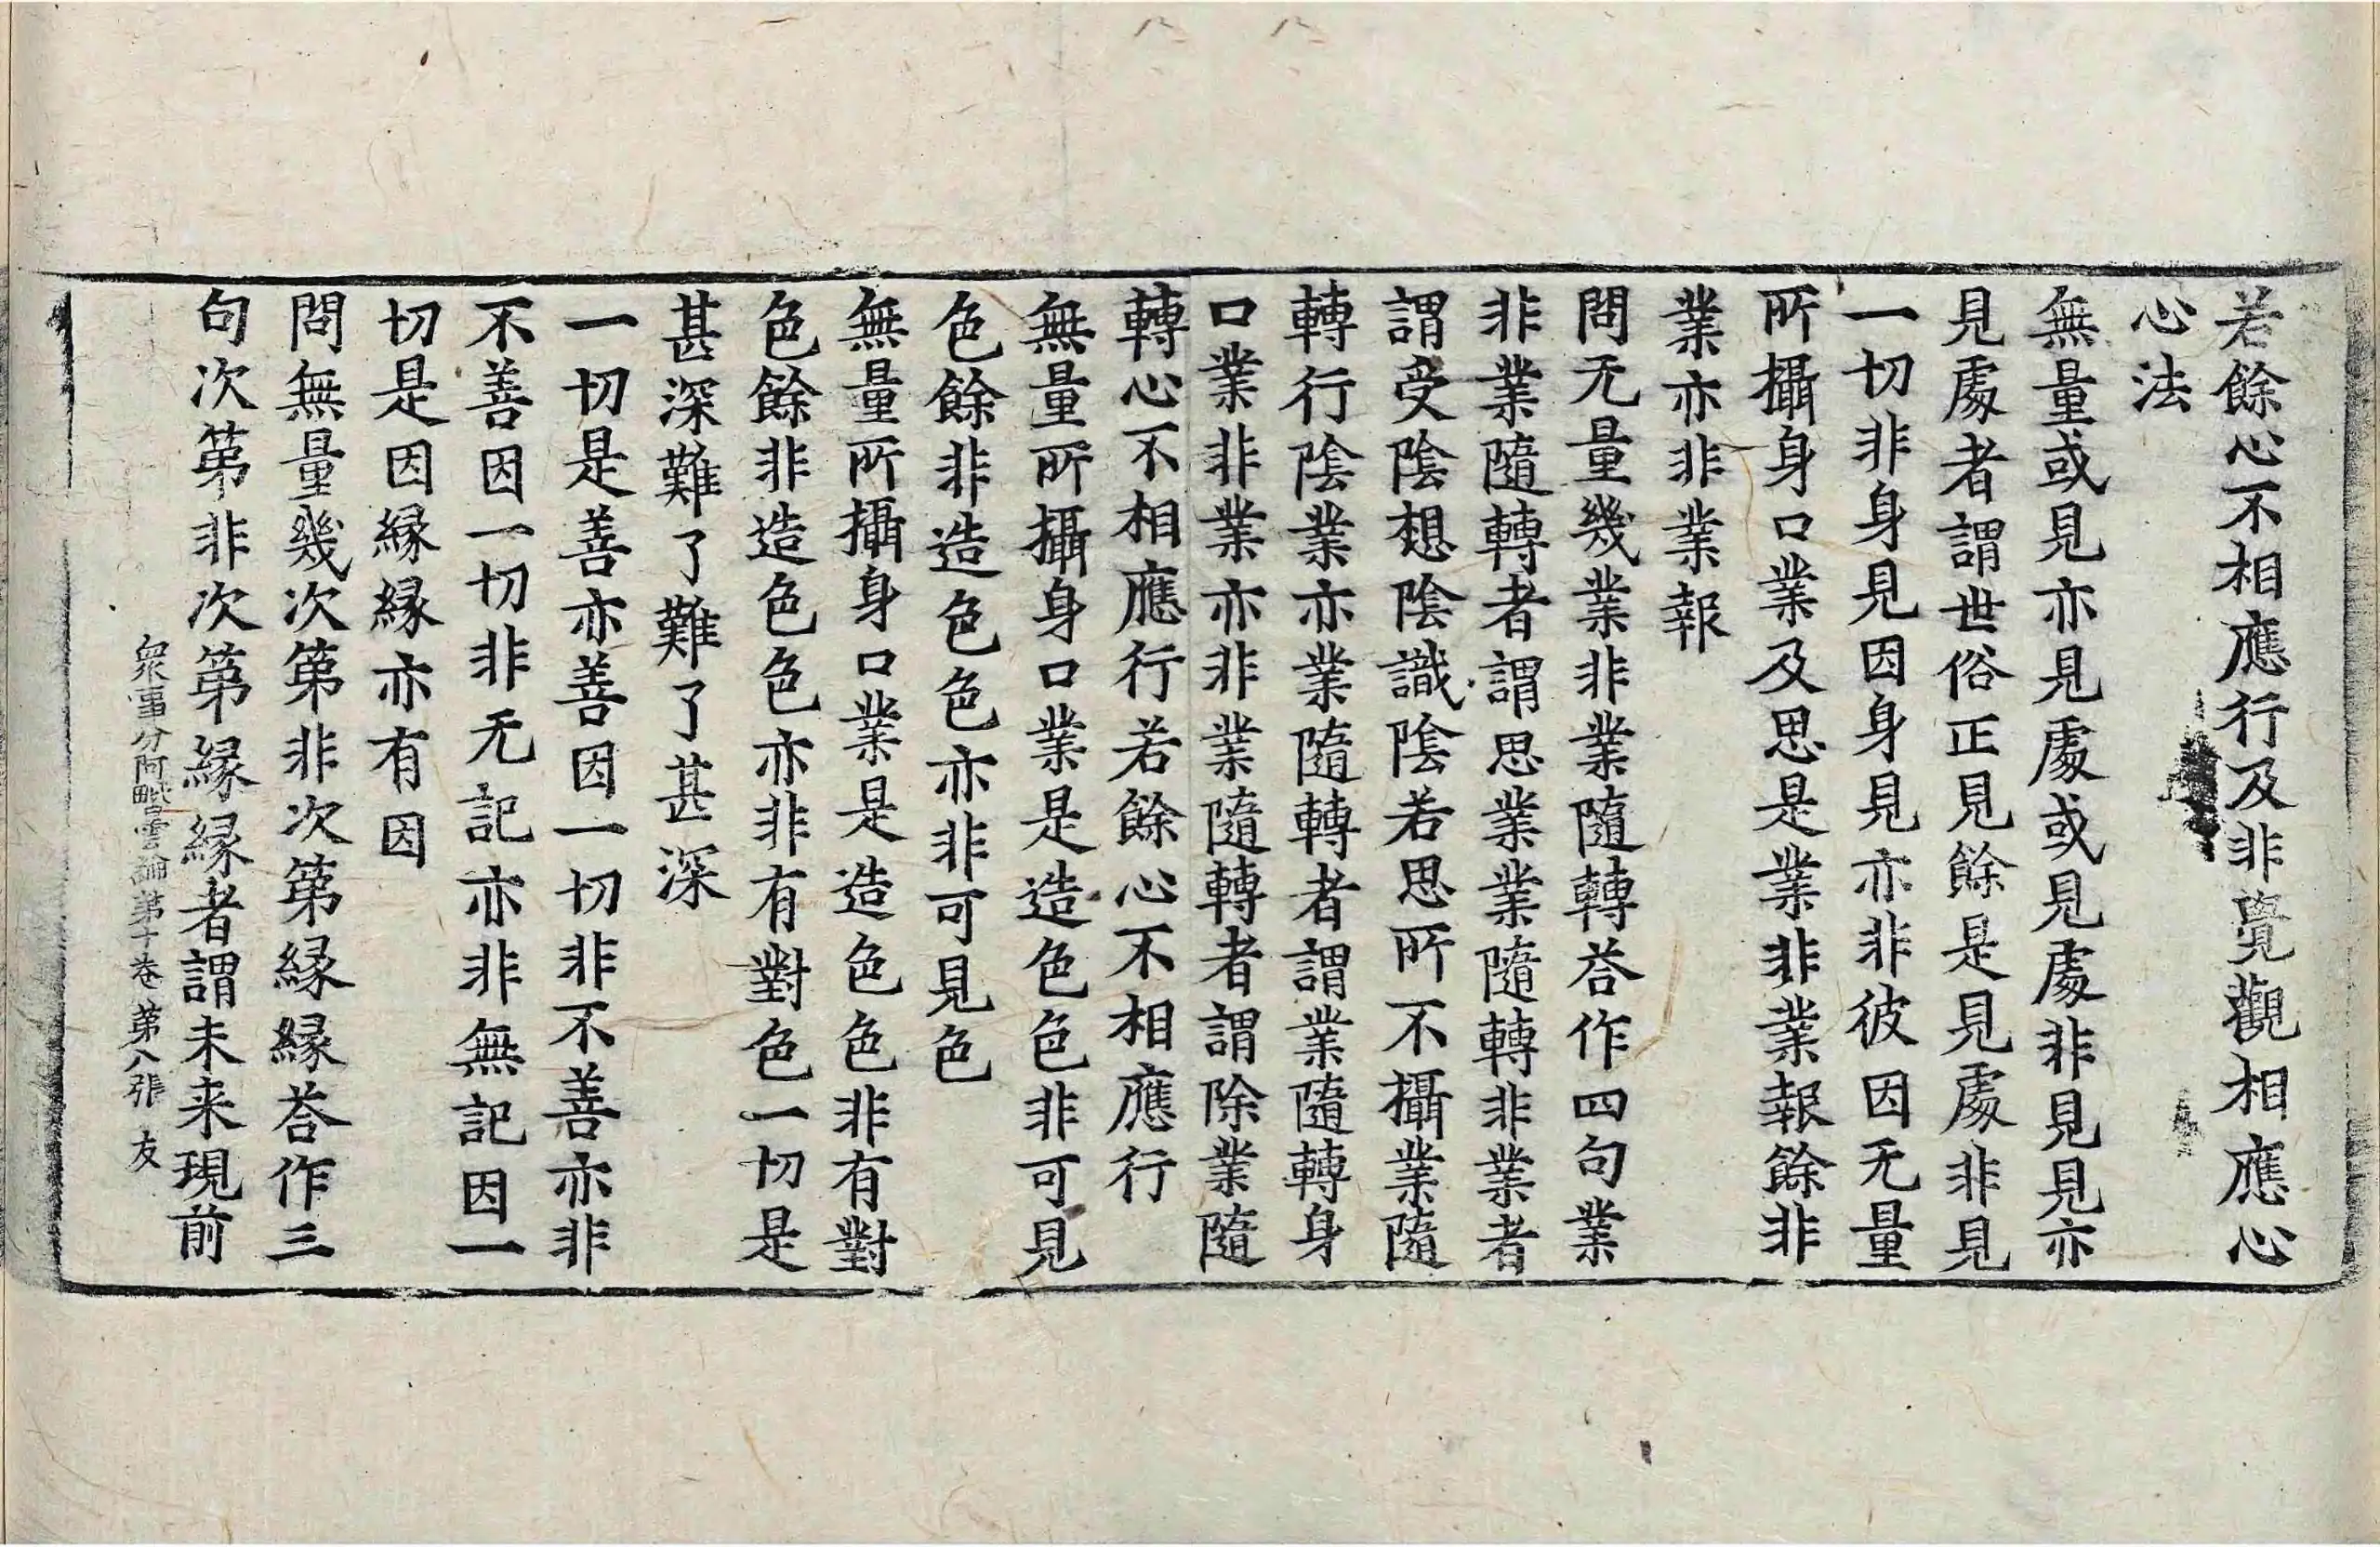 若餘心不相應行及非覺觀相應心
心法
無量或見亦見處或見處非見見亦
見處者謂世俗正見餘是見處非見
一切非身見因身見亦非彼因无量
所攝身口業及思是業非業報餘非
業亦非業報
問无量幾業非業隨轉荅作四句業
非業隨轉者謂思業業隨轉非業者
謂受陰想陰識陰若思所不攝業隨
轉行陰業亦業隨轉者謂業隨轉身
口業非業亦非業隨轉者謂除業隨
轉心不相應行若餘心不相應行
無量所攝身口業是造色色非可見
色餘非造色色亦非可見色
無量所攝身口業是造色色非有對
色餘非造色色亦非有對色一切是
甚深難了難了甚深
一切是善亦善因一切非不善亦非
不善因一切非无記亦非無記因一
切是因縁縁亦有因
問無量幾次第非次第縁縁荅作三
句次第非次第縁縁者謂未来現前
衆事分阿毗曇論第十卷 第八張 友